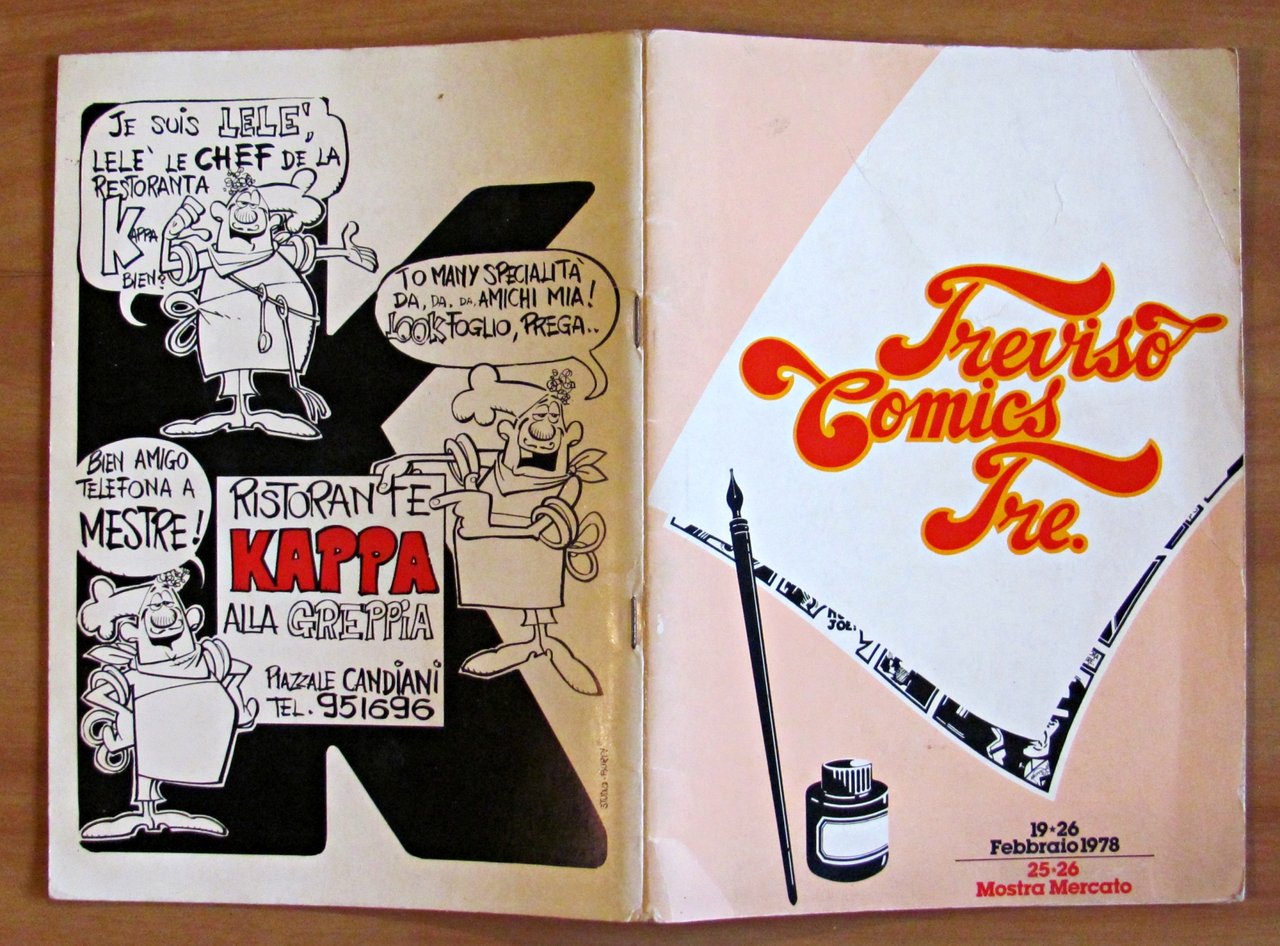 JE SUIS LELE',
LELE' LE CHEF DE LA
RESTORANTA
KAPPA
BIEN?
TO MANY SPECIALITÀ
DA, DA, DA, AMICHI MIA!
LOOK FOGLIO, PREGA..
BIEN AMIGO
TELEFONA A
MESTRE!
RISTORANTE
KAPPA
ALLA GREPPIA
PIAZZALE CANDIANI
TEL. 951696
Treviso
Comics
Tre.
19*26
Febbraio 1978
25*26
Mostra Mercato